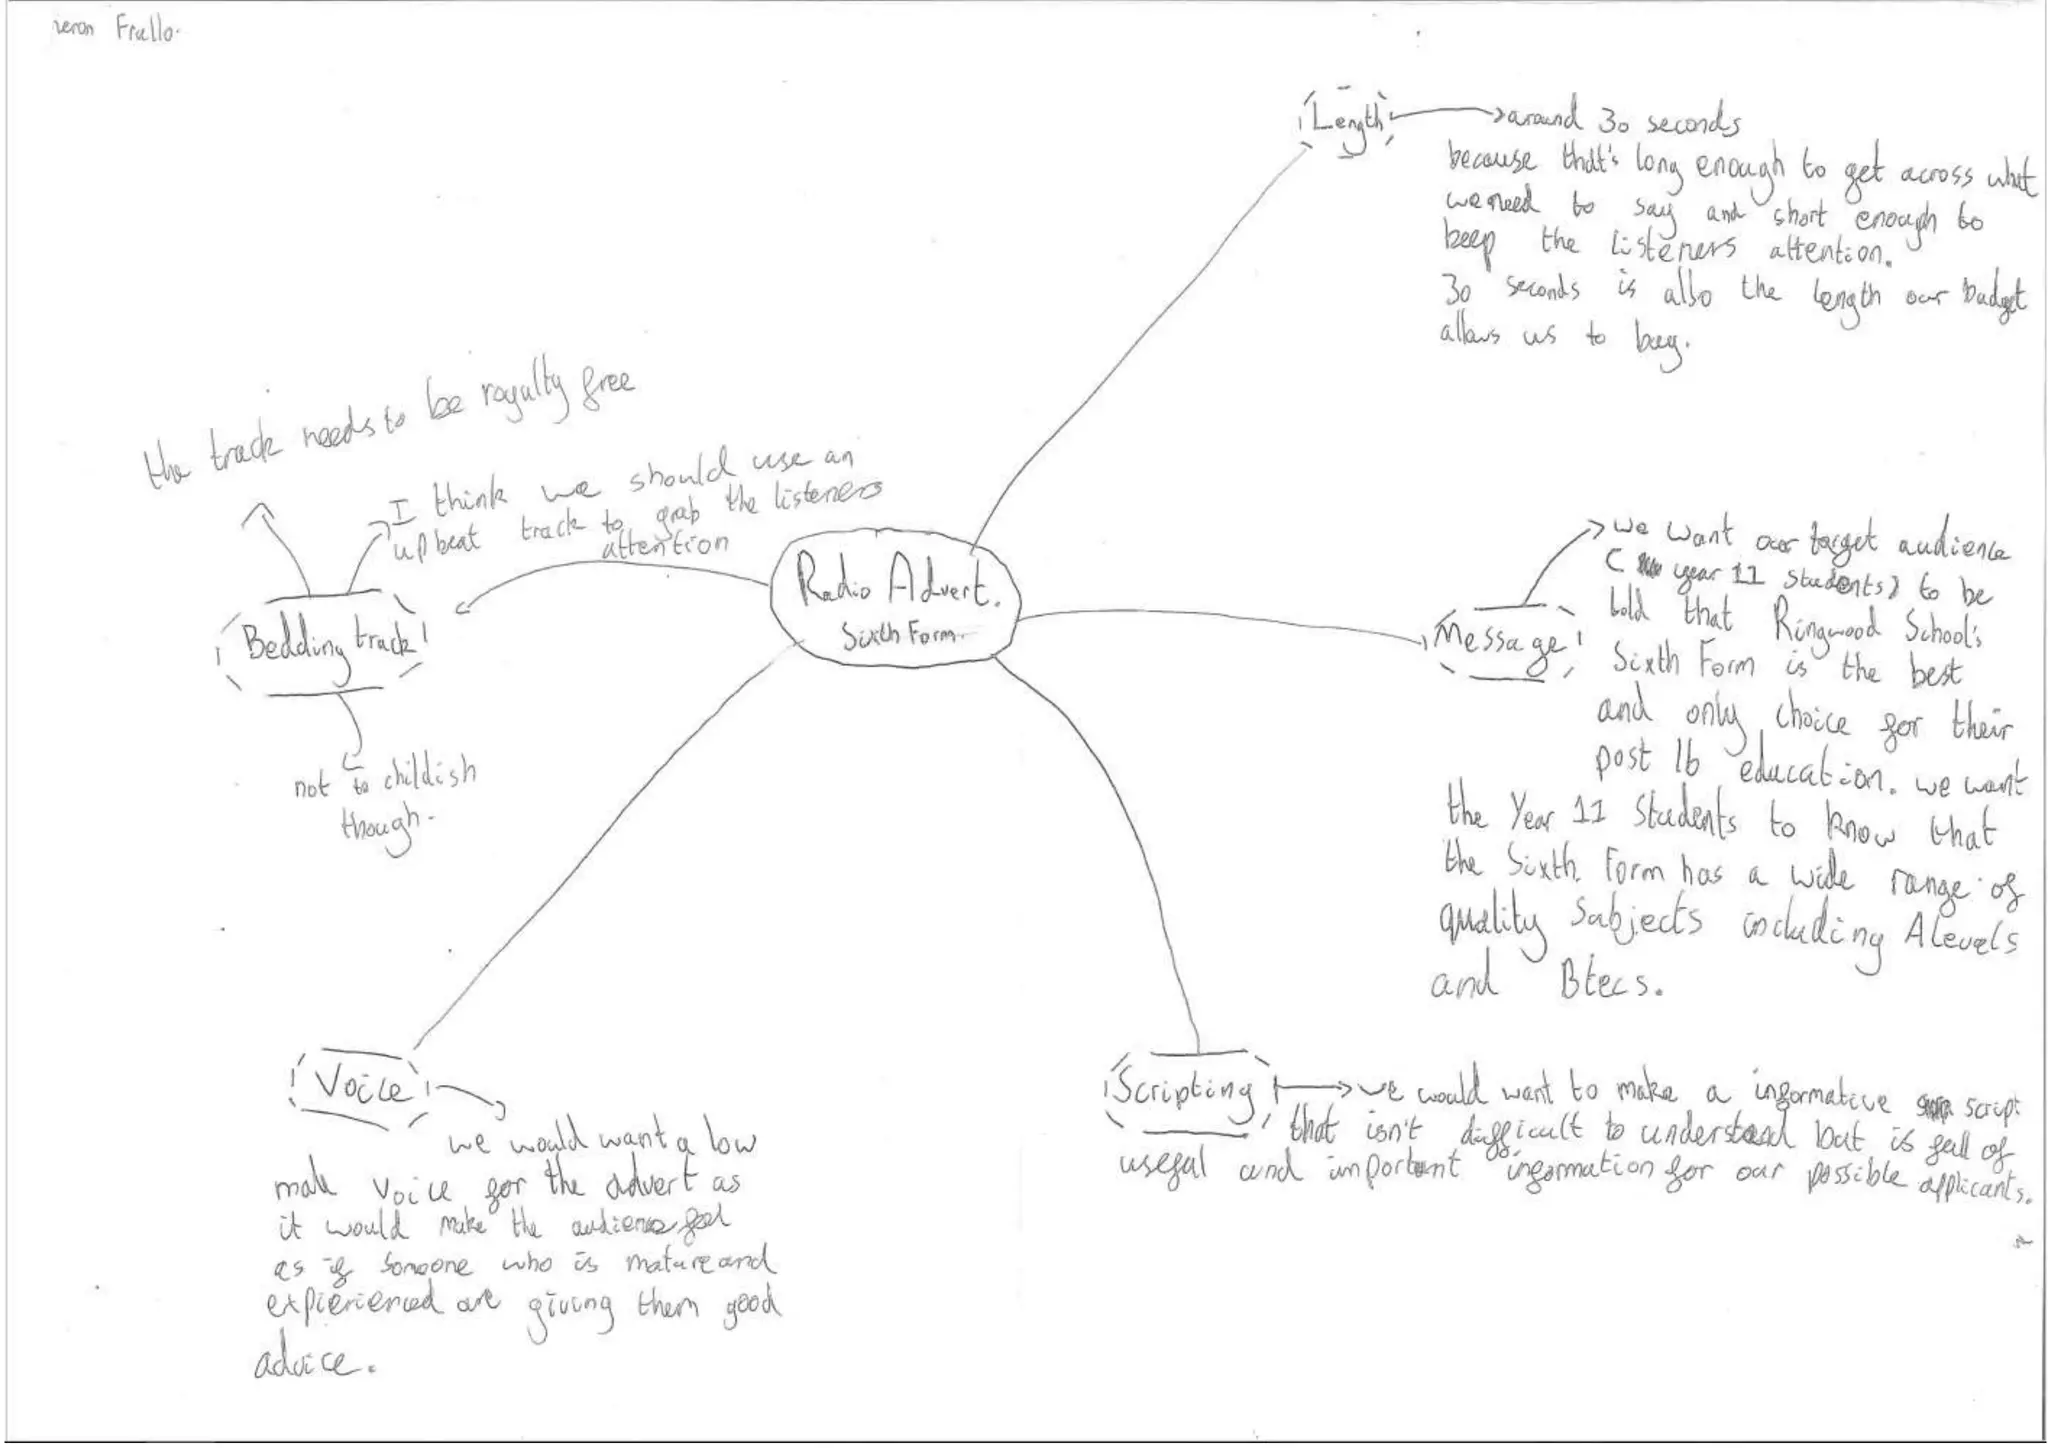 Frallo.
Length
around 30 seconds
because that's long enough to get across what
we need to say and short enough to
keep the listeners attention.
30 seconds is also the length our budget
allows us to buy.
the track needs to be royalty free
I think we should use an
upbeat track to grab the listeners
attention
Bedding track
not to childish
though.
Radio Advert.
Sixth Form.
Message
we want our target audience
( year 11 students) to be
told that Ringwood School's
Sixth Form is the best
and only choice for their
post 16 education. we want
the Year 11 Students to know that
the Sixth Form has a wide range of
quality Subjects including A levels
and Btecs.
Voice
we would want a low
male voice for the advert as
it would make the audience feel
as if someone who is mature and
expierienced are giving them good
advice.
Scripting
we would want to make a informative script
that isn't difficult to understand but is full of
useful and important information for our possible applicants.